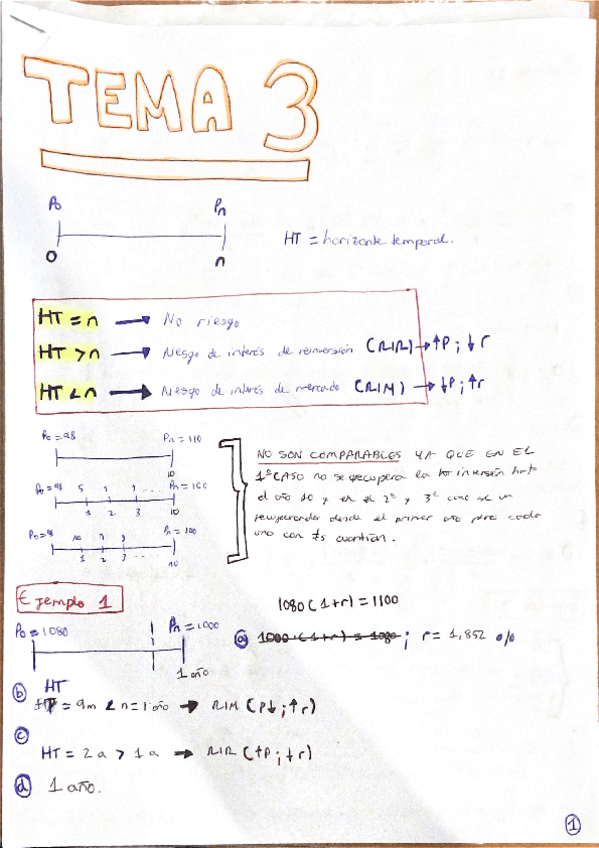 TEMA 3
P₀ Pₙ
0 n
HT = horizonte temporal.
HT = n → No riesgo
HT > n → Riesgo de interés de reinversión (RIR) → ↑P ; ↓ r
HT < n → Riesgo de interés de mercado (RIM) → ↓P ; ↑r
P₀ = 98 Pₙ = 110
10
P₀ = 98 5 5 Pₙ = 100
1 2 3 10
P₀ = 98 10 Pₙ = 100
1 2 3 10
NO SON COMPARABLES YA QUE EN EL
1º CASO no se recupera la inversión hasta
el año 10 y en el 2º y 3º caso se va
recuperando desde el primer año pero cada
uno con ≠s cuantías.
Ejemplo 1
1080 (1+r) = 1100
P₀ = 1080 Pₙ = 1000
1 año
a 1000 · (1+r) = 1080 ; r = 1,852 %
b HT
HT = 9m < n = 1 año → RIM (P↓ ; ↑r)
c
HT = 2a > 1a → RIR (↑P ; ↓r)
d 1 año.
1